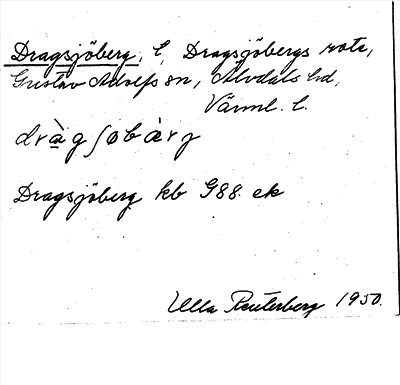 Dragsjöberg, l, Dragsjöbergs rote,
Gustav Adolfs sn, Älvdals hd,
Värml. l.
dràgʃøbærj
Dragsjöberg kb G88. ek
Ulla Reuterberg 1950.